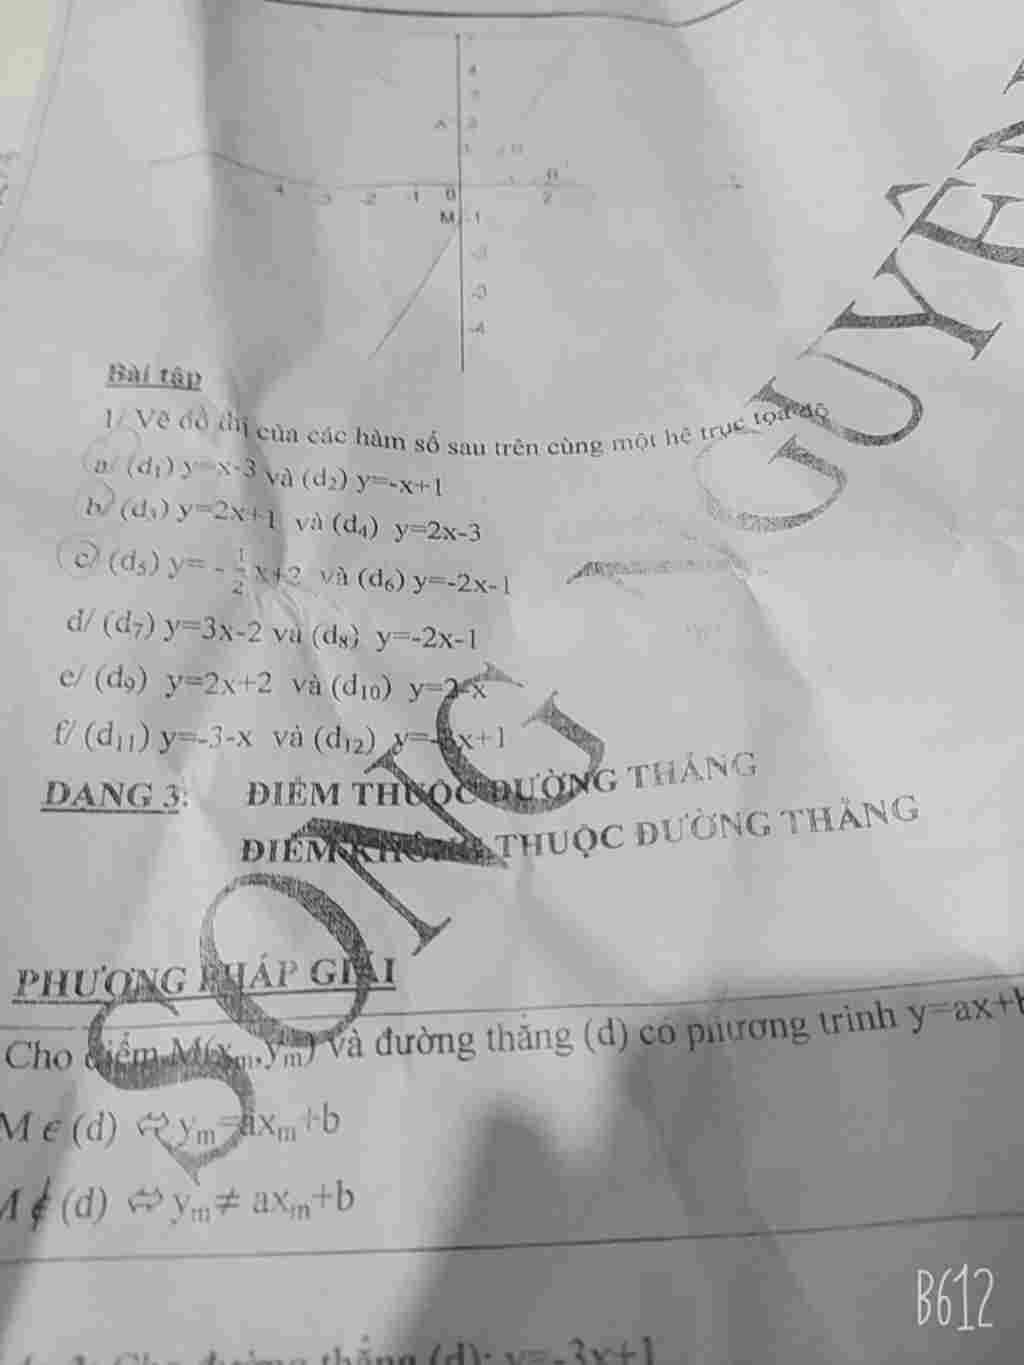 4
A
-4 -3 -2 -1 0 2
M -1
-4
Bài tập
1/ Vẽ đồ thị của các hàm số sau trên cùng một hệ trục tọa độ
a/ (d₁) y=x-3 và (d₂) y=-x+1
b/ (d₃) y=2x+1 và (d₄) y=2x-3
c/ (d₅) y= - 1/2 x+2 và (d₆) y=-2x-1
d/ (d₇) y=3x-2 và (d₈) y=-2x-1
e/ (d₉) y=2x+2 và (d₁₀) y=2-x
f/ (d₁₁) y=-3-x và (d₁₂) x+1
DẠNG 3: ĐIỂM THUỘC ĐƯỜNG THẲNG
ĐIỂM KHÔNG THUỘC ĐƯỜNG THẲNG
PHƯƠNG PHÁP GIẢI
Cho điểm M(xₘ,yₘ) và đường thẳng (d) có phương trình y=ax+b
M ϵ (d) ⇔ yₘ=axₘ+b
M ∉ (d) ⇔ yₘ≠ axₘ+b
Cho đường thẳng (d): y=-3x+1
SONG
GUYÊN
B612